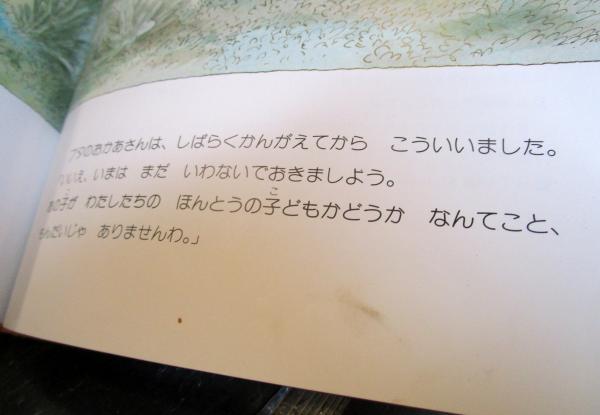 ブタのおかあさんは、しばらくかんがえてから　こういいました。
「いいえ、いまは　まだ　いわないでおきましょう。
あの子が　わたしたちの　ほんとうの子どもかどうか　なんてこと、
もんだいじゃ　ありませんわ。」